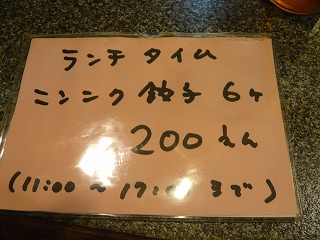 ランチ タイム
ニンニク 餃子 6ヶ
200えん
(11:00 〜 17:00 まで)